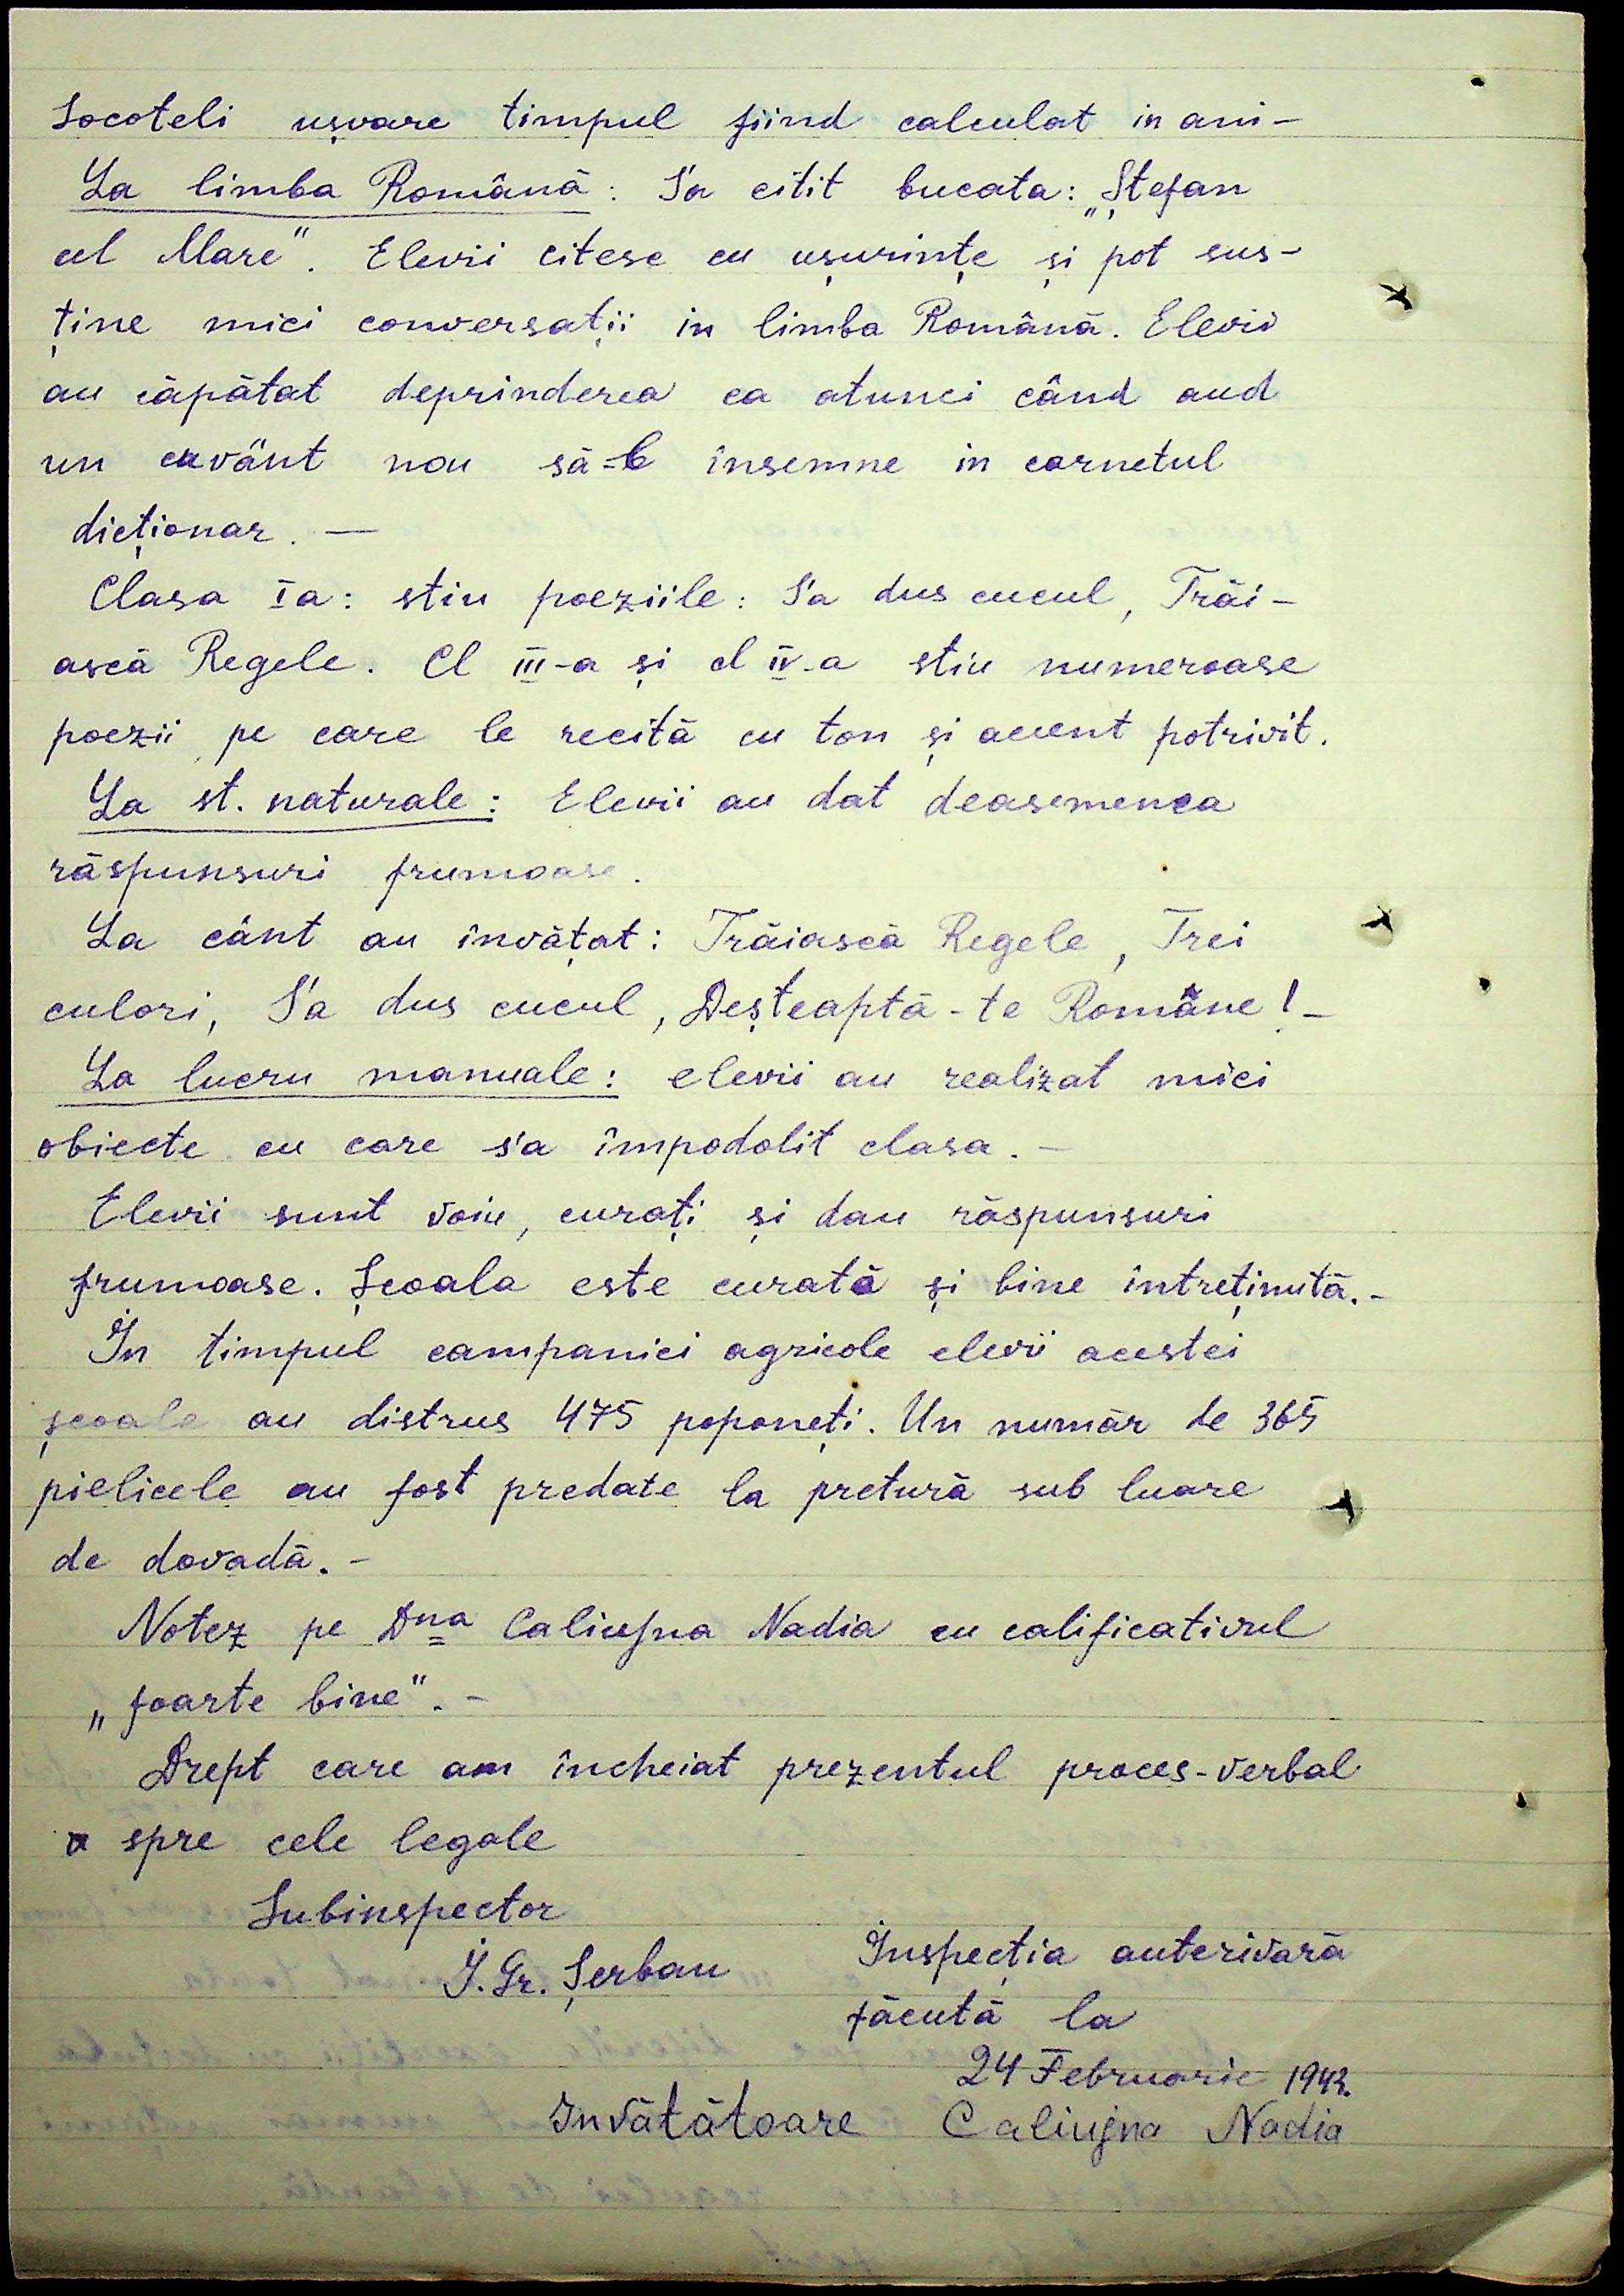 Socoteli ușoare timpul fiind calculat in ani-
La limba Română: S'a citit bucata: „Ștefan
cel Mare". Elevii citesc cu ușurințe și pot sus-
ține mici conversații in limba Română. Elevii
au căpătat deprinderea ca atunci când aud
un cuvânt nou să-l însemne in carnetul
dicționar. —
Clasa Ia: stiu poeziile: S'a dus cucul, Trăi-
ască Regele. Cl III-a și cl IV-a stiu numeroase
poezii pe care le recită cu ton și accent potrivit.
La st. naturale: Elevii au dat deasemenea
răspunsuri frumoase.
La cânt au învățat: Trăiască Regele, Trei
culori, S'a dus cucul, Deșteaptă-te Române! -
La lucru manuale: elevii au realizat mici
obiecte cu care s'a împodobit clasa. -
Elevii sunt voiu, curați și dau răspunsuri
frumoase. Școala este curată și bine întreținută. -
În timpul campaniei agricole elevii acestei
școale au distrus 475 poponeți. Un număr de 365
pielicele au fost predate la pretură sub luare
de dovadă. -
Notez pe Dna Caliujna Nadia cu calificativul
„foarte bine". -
Drept care am încheiat prezentul proces-verbal
spre cele legale
Subinspector
I. Gr. Șerban
Inspecția anterioară
făcută la
24 Februarie 1943.
Invătătoare Caliujna Nadia